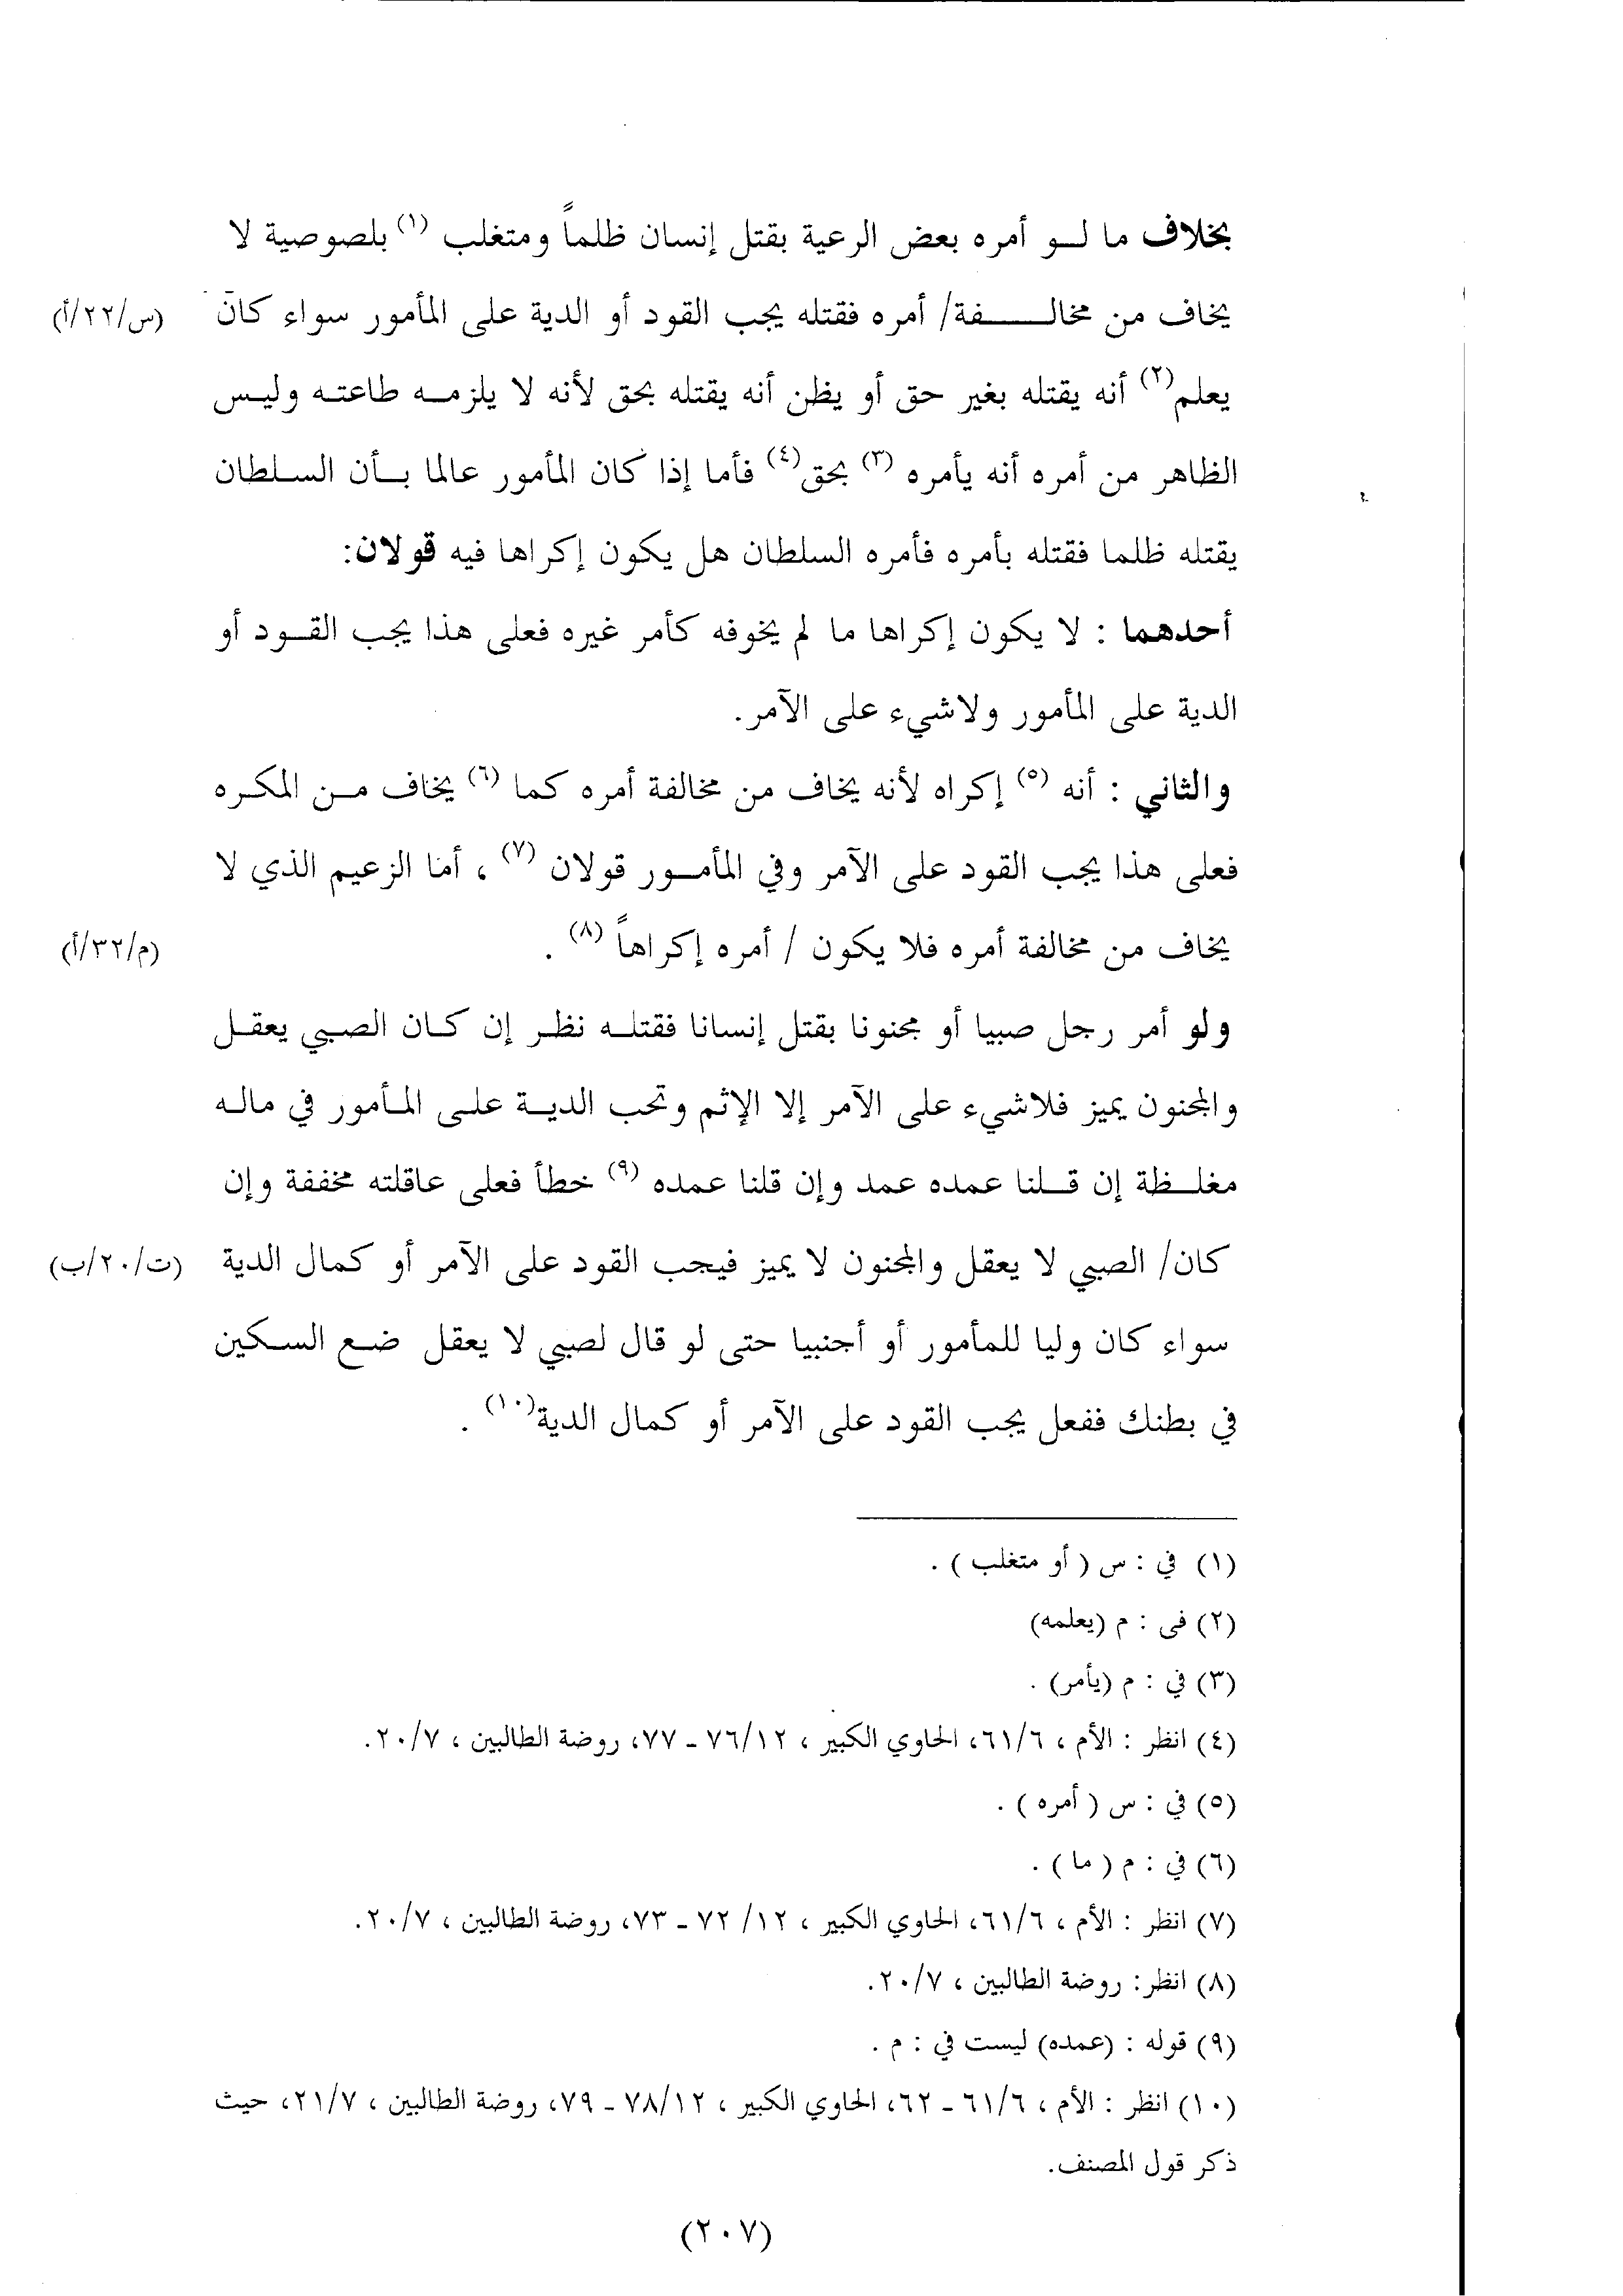 بخلاف ما لـو أمره بعض الرعية بقتل إنسان ظلماً ومتغلب (١) بلصوصية لا
يخاف من مخالـــفة/ أمره فقتله يجب القود أو الدية على المأمور سواء كان (س/٢٢/أ)
يعلم(٢) أنه يقتله بغير حق أو يظن أنه يقتله بحق لأنه لا يلزمـه طاعتـه وليـس
الظاهر من أمره أنه يأمره (٣) بحق(٤) فأما إذا كان المأمور عالما بـأن السـلطان
يقتله ظلما فقتله بأمره فأمره السلطان هل يكون إكراها فيه قولان:
أحدهما : لا يكون إكراها ما لم يخوفه كأمر غيره فعلى هذا يجب القـود أو
الدية على المأمور ولاشيء على الآمر.
والثاني : أنه (٥) إكراه لأنه يخاف من مخالفة أمره كما (٦) يخاف مـن المكـره
فعلى هذا يجب القود على الآمر وفي المأمـور قولان (٧) ، أما الزعيم الذي لا
يخاف من مخالفة أمره فلا يكون / أمره إكراهاً (٨) . (م/٣٢/أ)
ولو أمر رجل صبيا أو مجنونا بقتل إنسانا فقتلـه نظـر إن كـان الصـبي يعقـل
والمجنون يميز فلاشيء على الآمر إلا الإثم وتجب الديـة علـى المـأمور في مالـه
مغلـظة إن قـلنا عمده عمد وإن قلنا عمده (٩) خطأ فعلى عاقلته مخففة وإن
كان/ الصبي لا يعقل والمجنون لا يميز فيجب القود على الآمر أو كمال الدية (ت/٢٠/ب)
سواء كان وليا للمأمور أو أجنبيا حتى لو قال لصبي لا يعقل ضـع السـكين
في بطنك ففعل يجب القود على الآمر أو كمال الدية(١٠) .
(١) في : س ( أو متغلب ) .
(٢) فى : م (يعلمه)
(٣) في : م (يأمر) .
(٤) انظر : الأم ، ٦١/٦، الحاوي الكبير ، ٧٦/١٢ ـ ٧٧، روضة الطالبين ، ٢٠/٧.
(٥) في : س ( أمره ) .
(٦) في : م ( ما ) .
(٧) انظر : الأم ، ٦١/٦، الحاوي الكبير ، ١٢/ ٧٢ ـ ٧٣، روضة الطالبين ، ٢٠/٧.
(٨) انظر: روضة الطالبين ، ٢٠/٧.
(٩) قوله : (عمده) ليست في : م .
(١٠) انظر : الأم ، ٦١/٦ ـ ٦٢، الحاوي الكبير ، ٧٨/١٢ ـ ٧٩، روضة الطالبين ، ٢١/٧، حيث
ذكر قول المصنف.
(٢٠٧)